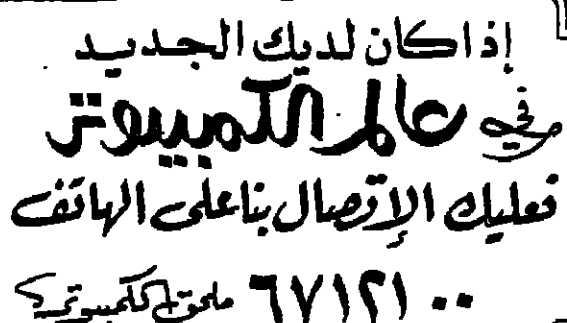 إذا كان لديك الجديد
في عالم الكمبيوتر
فعليك الإتصال بنا على الهاتف
٦٧١٢١٠٠ ملحق الكمبيوتر